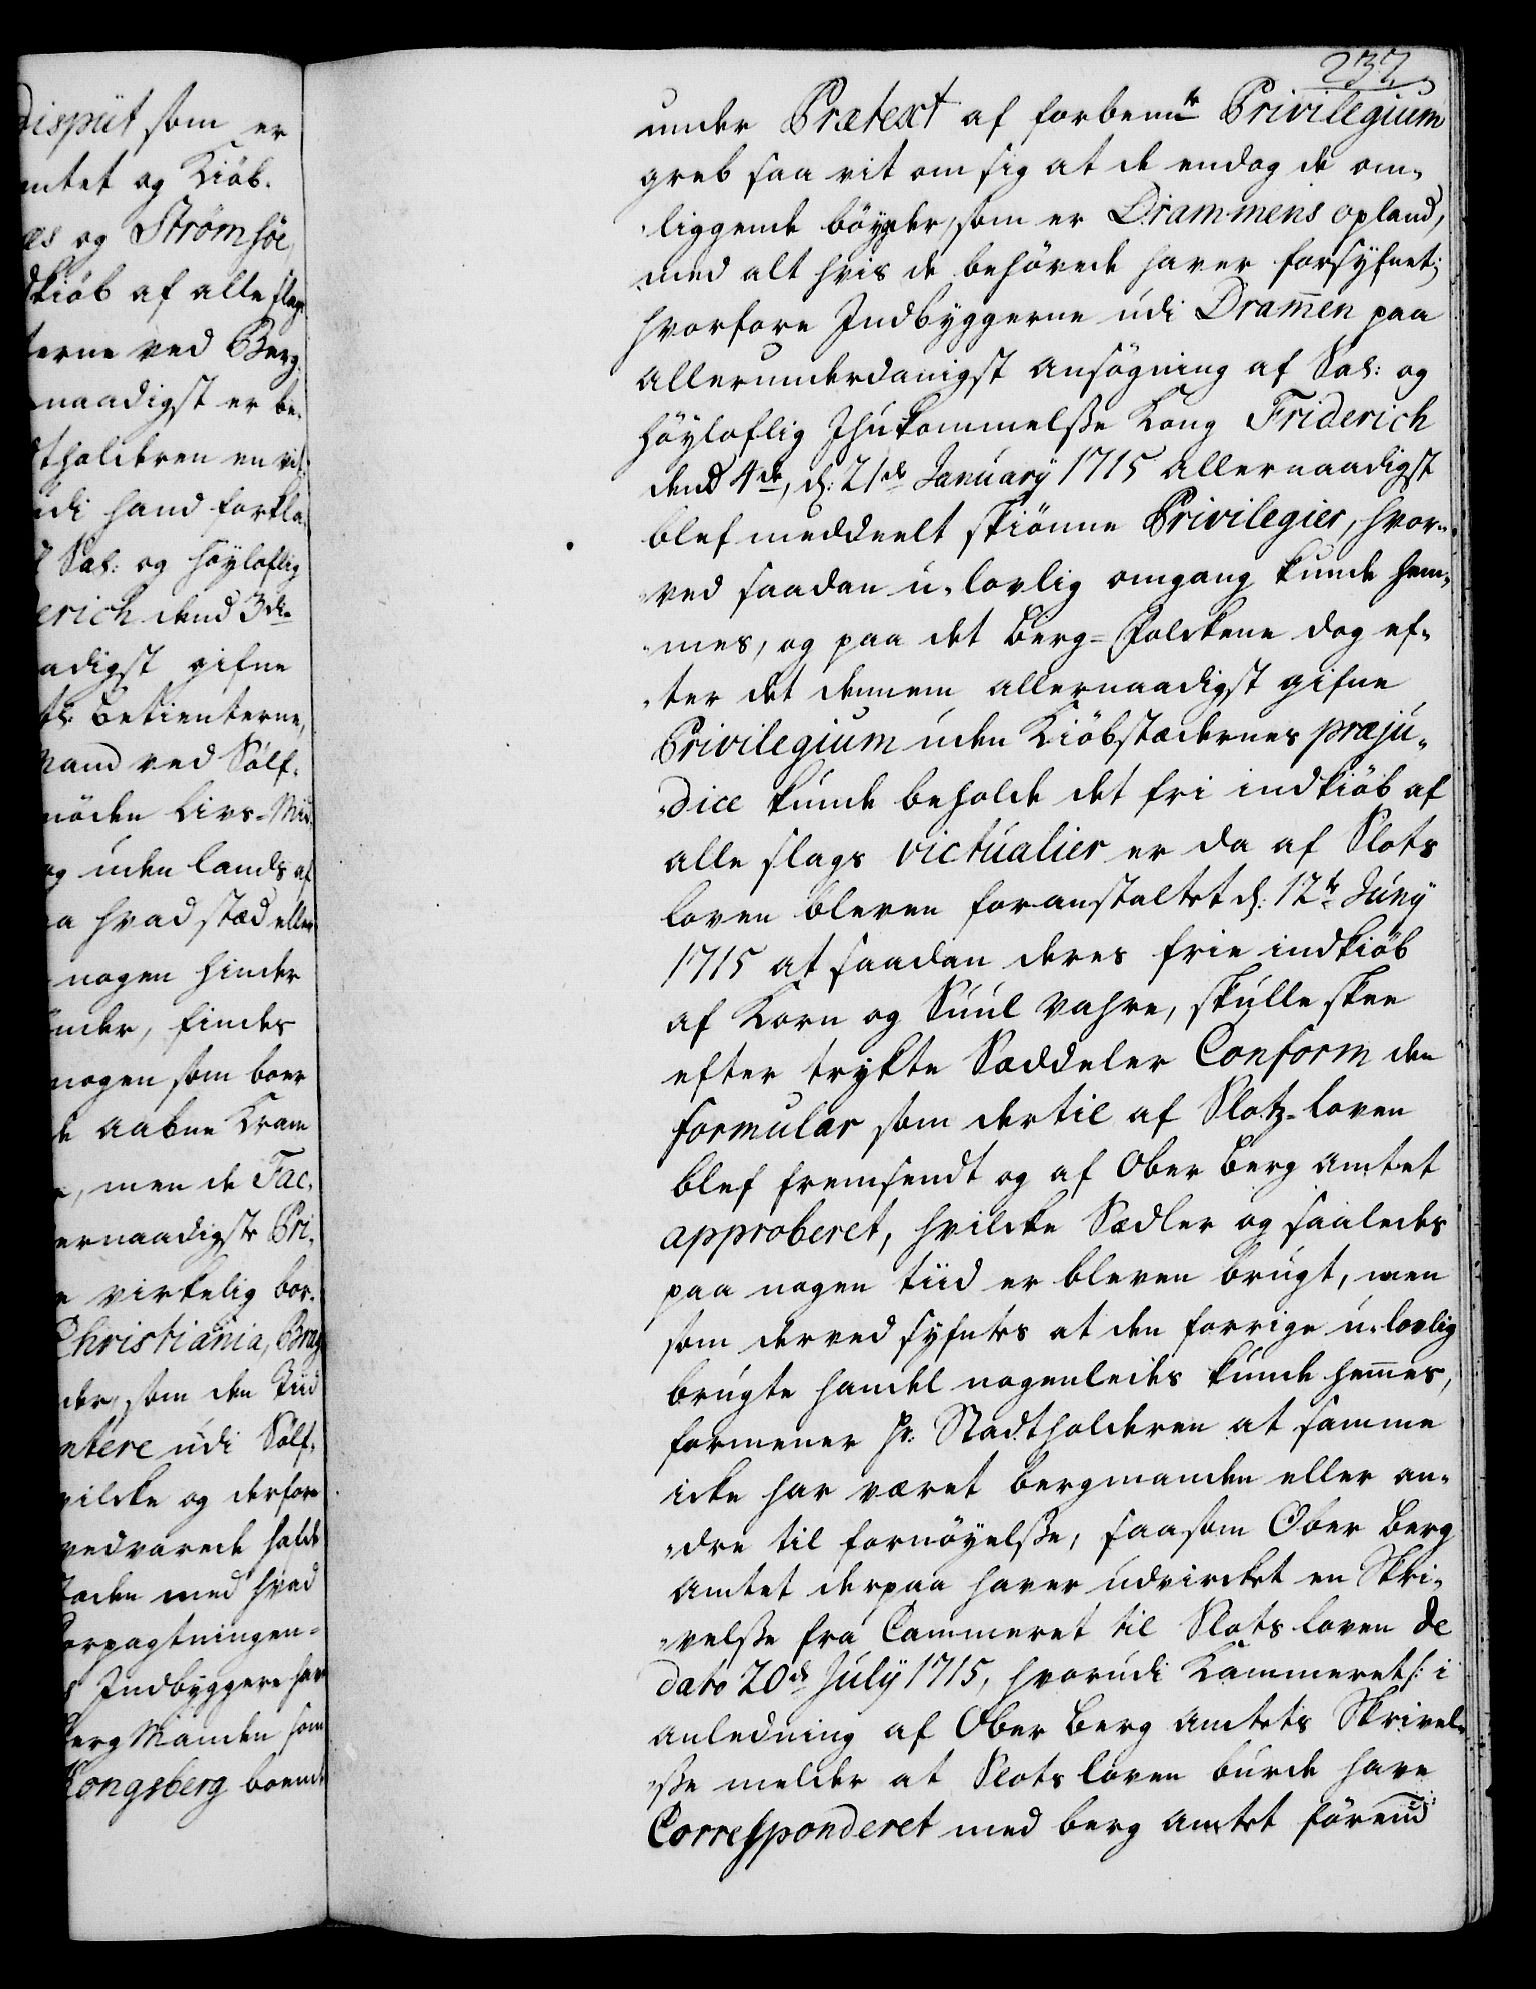 disput som er
mtet og Kiöb.
es og Strømsöe
dkiöb af alle slags
terne ved Berg
naadigst er be,
tholderen en vit
udi hand forkla,
Sal: og höyloflig
erich dend 3die
adigst gifne
ts betienterne,
mand ved Sølf,
nöden Livs-Mid
og uden lands af
a hvad stæd eller
nogen hinder
nder, findes
nogen som boer
de aabne Kram
e, men de Fac,
ernaadigste Pri,
e virkelig bor,
Christiania, Brag
der, som den Tiid
ntere udi Sølf,
vilcke og derfore
vedvarede holdt
stæden med hvad
forpagtningen
s Indbyggere har
Berg Manden som
Kongsberg boende
237.
under Prætext af forbemte Privilegium
greb saa vit om sig at de endog de om,
liggende böygder, som er Drammens opland,
med alt hvis de behövede haver forsyfnet;
hvorfore Indbyggerne udi Dramen paa
allerunderdanigst ansögning af Sal: og
höyloflig Ihukommelsse Kong Friderich
dend 4de, d: 21de January 1715 allernaadigst
blef meddeelt skiönne Privilegier, hvor,
ved saadan u-lovlig omgang kunde hem,
mes, og paa det Berg-Folckene dog ef,
ter det dennem allernaadigst gifne
Privilegium uden Kiöbstædernes præju,
dice kunde beholde det fri indkiöb af
alle slags victualier er da af Slots
loven bleven foranstaltet d: 12te Juny
1715 at saadan deres frie indkiöb
af Korn og Suul Vahre, skulle skee
efter trykte Sæddeler Conform den
formular som dertil af Slotz-loven
blef fremsendt og af Ober Berg Amtet
approberet, hvilcke Sædler og saaledes
paa nogen tiid er bleven brugt, men
som derved syfntes at den forrige u-lovlig
brugte handel nogenledes kunde hemes,
formener Hr: Stadtholderen at samme
icke har været bergmanden eller an,
dre til fornöyelsse, saasom Ober Berg
Amtet derpaa haver udvircket en Skri,
velsse fra Cammeret til Slots loven de
dato 20de July 1715, hvorudi Kammeret /: i
anledning af Ober Berg Amtets Skrivel,
sse melder at Slots loven burde have
Corresponderet med berg Amtet förend